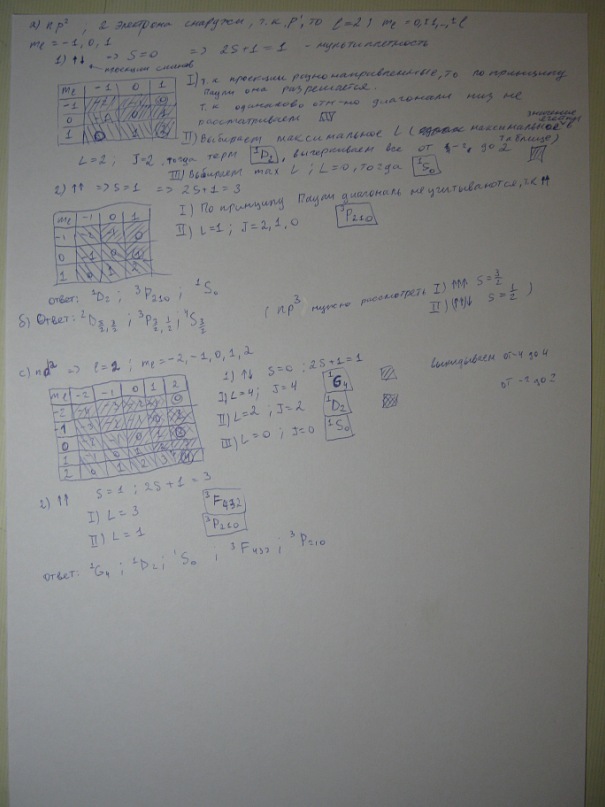 а) np² ; 2 электрона снаружи, т.к. p', то l=2) mₑ = 0,±1,..,±l
mₑ = -1, 0, 1
1) ↑↓ => S=0 => 2S+1 = 1 - мультиплетность
проекции спинов
mₑ -1 0 1
-1
0
1
I) т.к проекции разнонаправленные, то по принципу
Паули она разрешается.
т.к одинаково отн-но диагонали низ не
рассматриваем
II) Выбираем максимальное L (максимальное в таблице)
L=2 ; J=2 тогда терм ¹D₂, вычеркиваем все от -2 до 2
III) Выбираем max L ; L=0, тогда ¹S₀
2) ↑↑ => S=1 => 2S+1 = 3
mₑ -1 0 1
-1 -2 -1 0
0 -1 0 1
1 0 1 2
I) По принципу Паули диагональ не учитываются, т.к ↑↑
II) L=1 ; J=2,1,0 ³P₂₁₀
ответ: ¹D₂ ; ³P₂₁₀ ; ¹S₀
б) Ответ: ²D 5/2, 3/2 ; ²P 3/2, 1/2 ; ⁴S 3/2
( np³ нужно рассмотреть I) ↑↑↑ S=3/2
II) ↑↑↓ S=1/2 )
c) nd² => l=2 ; mₑ = -2, -1, 0, 1, 2
mₑ -2 -1 0 1 2
-2
-1
0
1
2
1) ↑↓ S=0 ; 2S+1=1
I) L=4; J=4 ¹G₄ от -4 до 4
II) L=2 ; J=2 ¹D₂ от -2 до 2
III) L=0 ; J=0 ¹S₀
2) ↑↑ S=1 ; 2S+1 = 3
I) L=3 ³F₄₃₂
II) L=1 ³P₂₁₀
ответ: ¹G₄ ; ¹D₂ ; ¹S₀ ; ³F₄₃₂ ; ³P₂₁₀